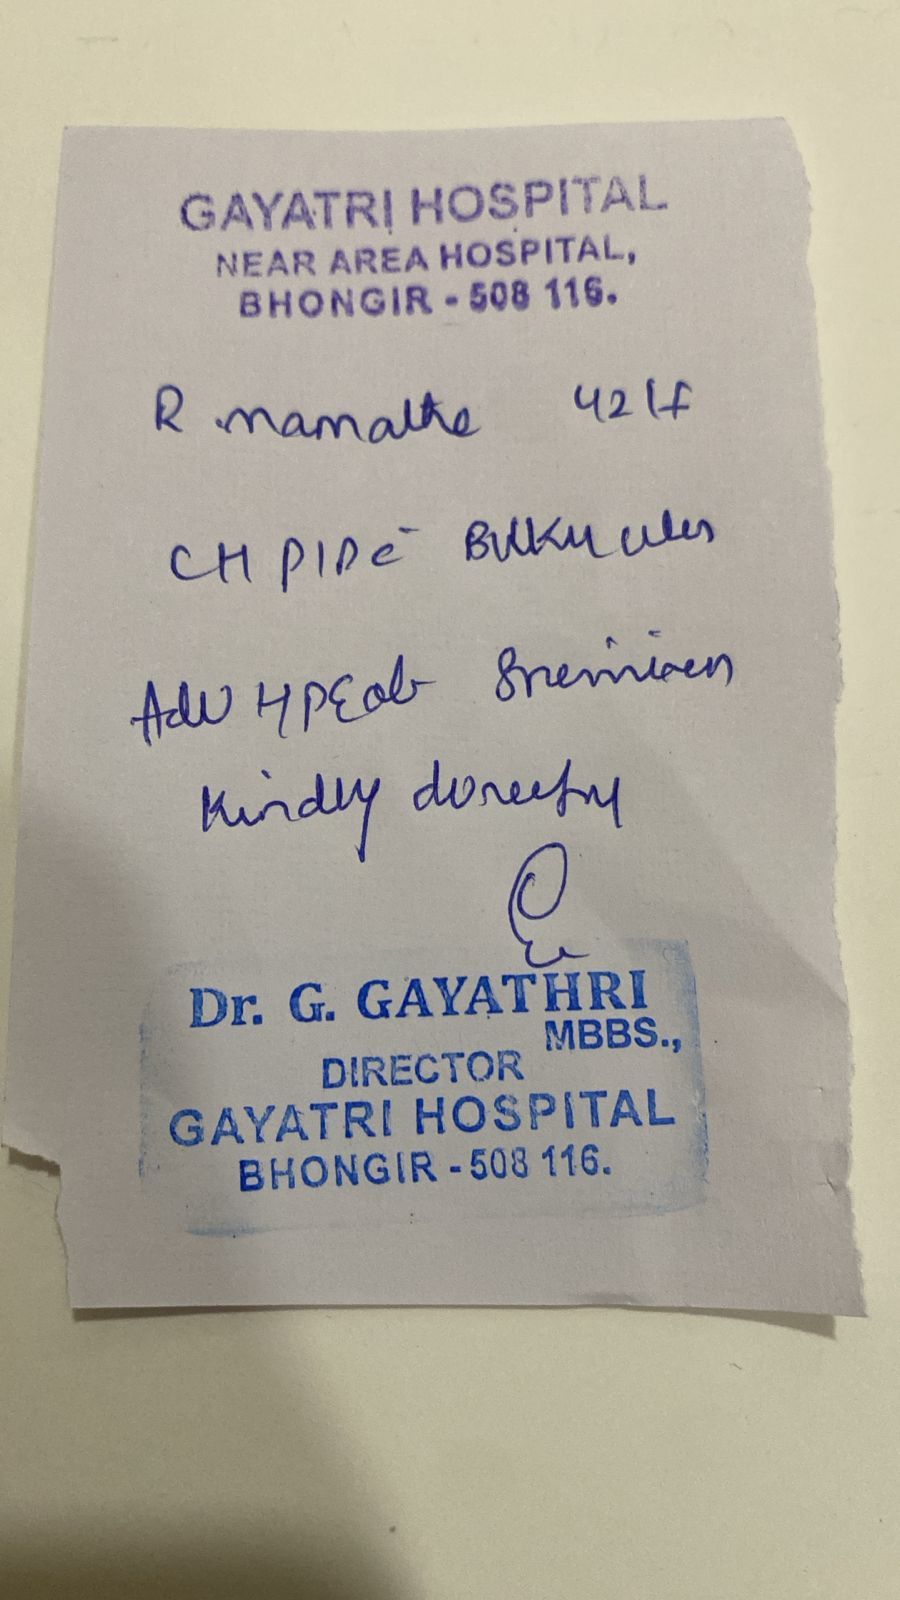 GAYATRI HOSPITAL
NEAR AREA HOSPITAL,
BHONGIR - 508 116.
R mamatha 42/f
CH PID c̄ Bulky uterus
Adv HPE of Specimen
Kindly do needful
Dr. G. GAYATHRI
MBBS.,
DIRECTOR
GAYATRI HOSPITAL
BHONGIR - 508 116.